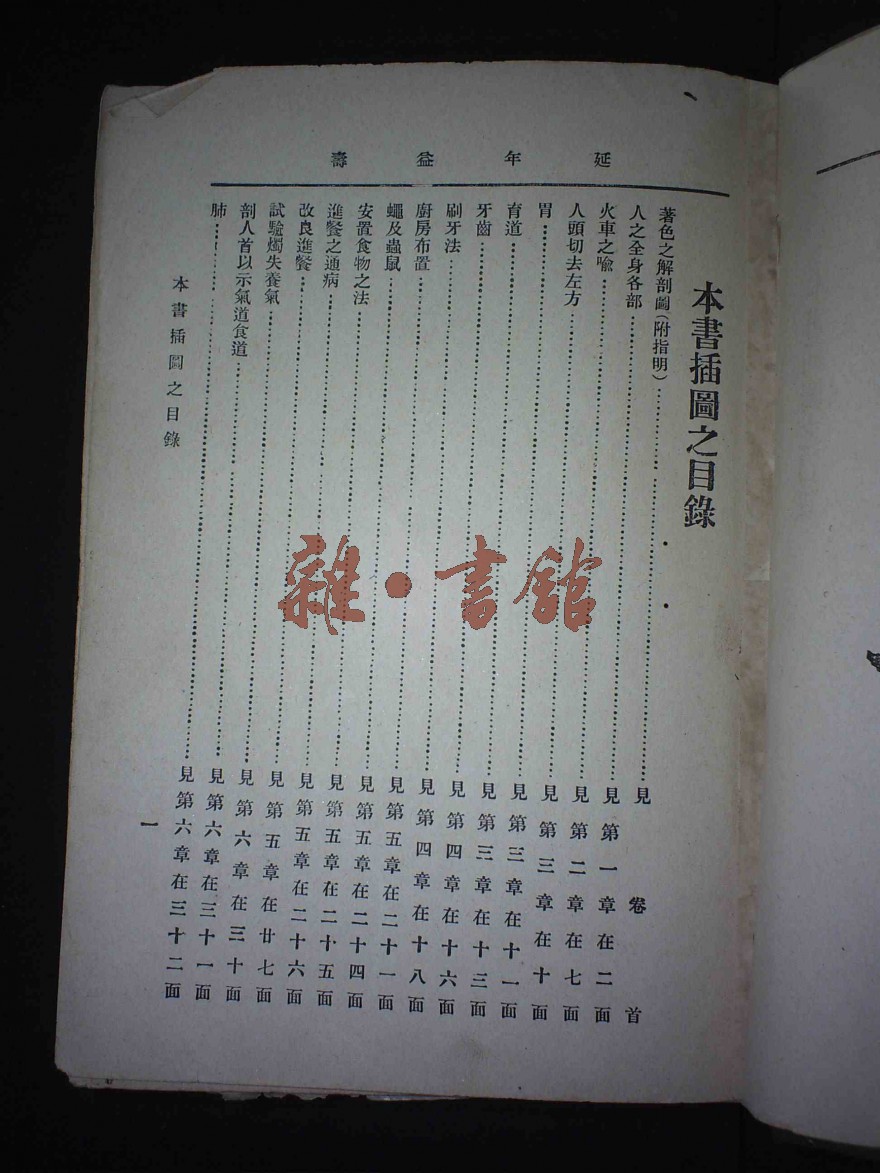 延年益壽
本書插圖之目錄
著色之解剖圖(附指明)……見卷首
人之全身各部……見第一章在二面
火車之喻……見第二章在七面
人頭切去左方……見第三章在十面
胃……見第三章在十一面
育道……見第三章在十三面
牙齒……見第四章在十六面
刷牙法……見第四章在十八面
廚房布置……見第五章在二十一面
蠅及蟲鼠……見第五章在二十四面
安置食物之法……見第五章在二十五面
進餐之通病……見第五章在二十六面
改良進餐……見第五章在廿七面
試驗燭失養氣……見第六章在三十面
剖人首以示氣道食道……見第六章在三十一面
肺……見第六章在三十二面
本書插圖之目錄
一
雜·書館